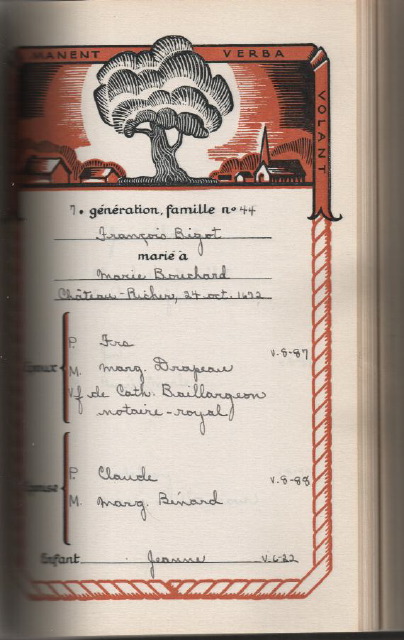 MANENT VERBA VOLANT
7e génération, famille no 44
François Bigot
marié à
Marie Bouchard
Château-Richer, 24 oct. 1672
P. Frs
V-8-87
M. Marg. Drapeau
Vf de Cath. Baillargeon
notaire-royal
P. Claude
V-8-88
M. Marg. Bénard
Enfant Jeanne V-6-22